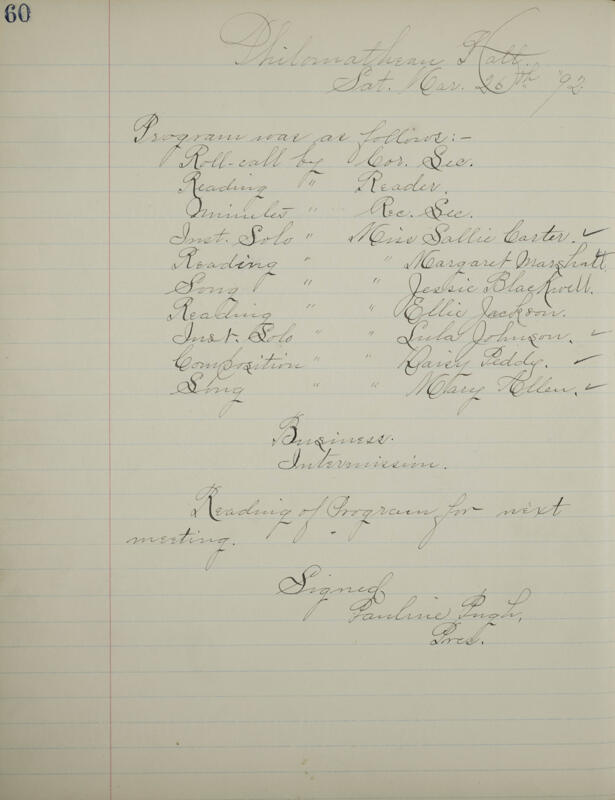 60
Philomathean Hall.
Sat. Mar. 26th '92
Program was as follows:-
Roll-call by Cor. Sec.
Reading " Reader.
Minutes " Rec. Sec.
Inst. Solo " Miss Sallie Carter. ✓
Reading " " Margaret Marshall
Song " " Jessie Blackwell.
Reading " " Ellie Jackson.
Inst. Solo " " Lula Johnson. ✓
Composition " " Daisy Peddy. ✓
Song " " Mary Allen. ✓
Business.
Intermission.
Reading of Program for next
meeting.
Signed
Pauline Pugh,
Pres.